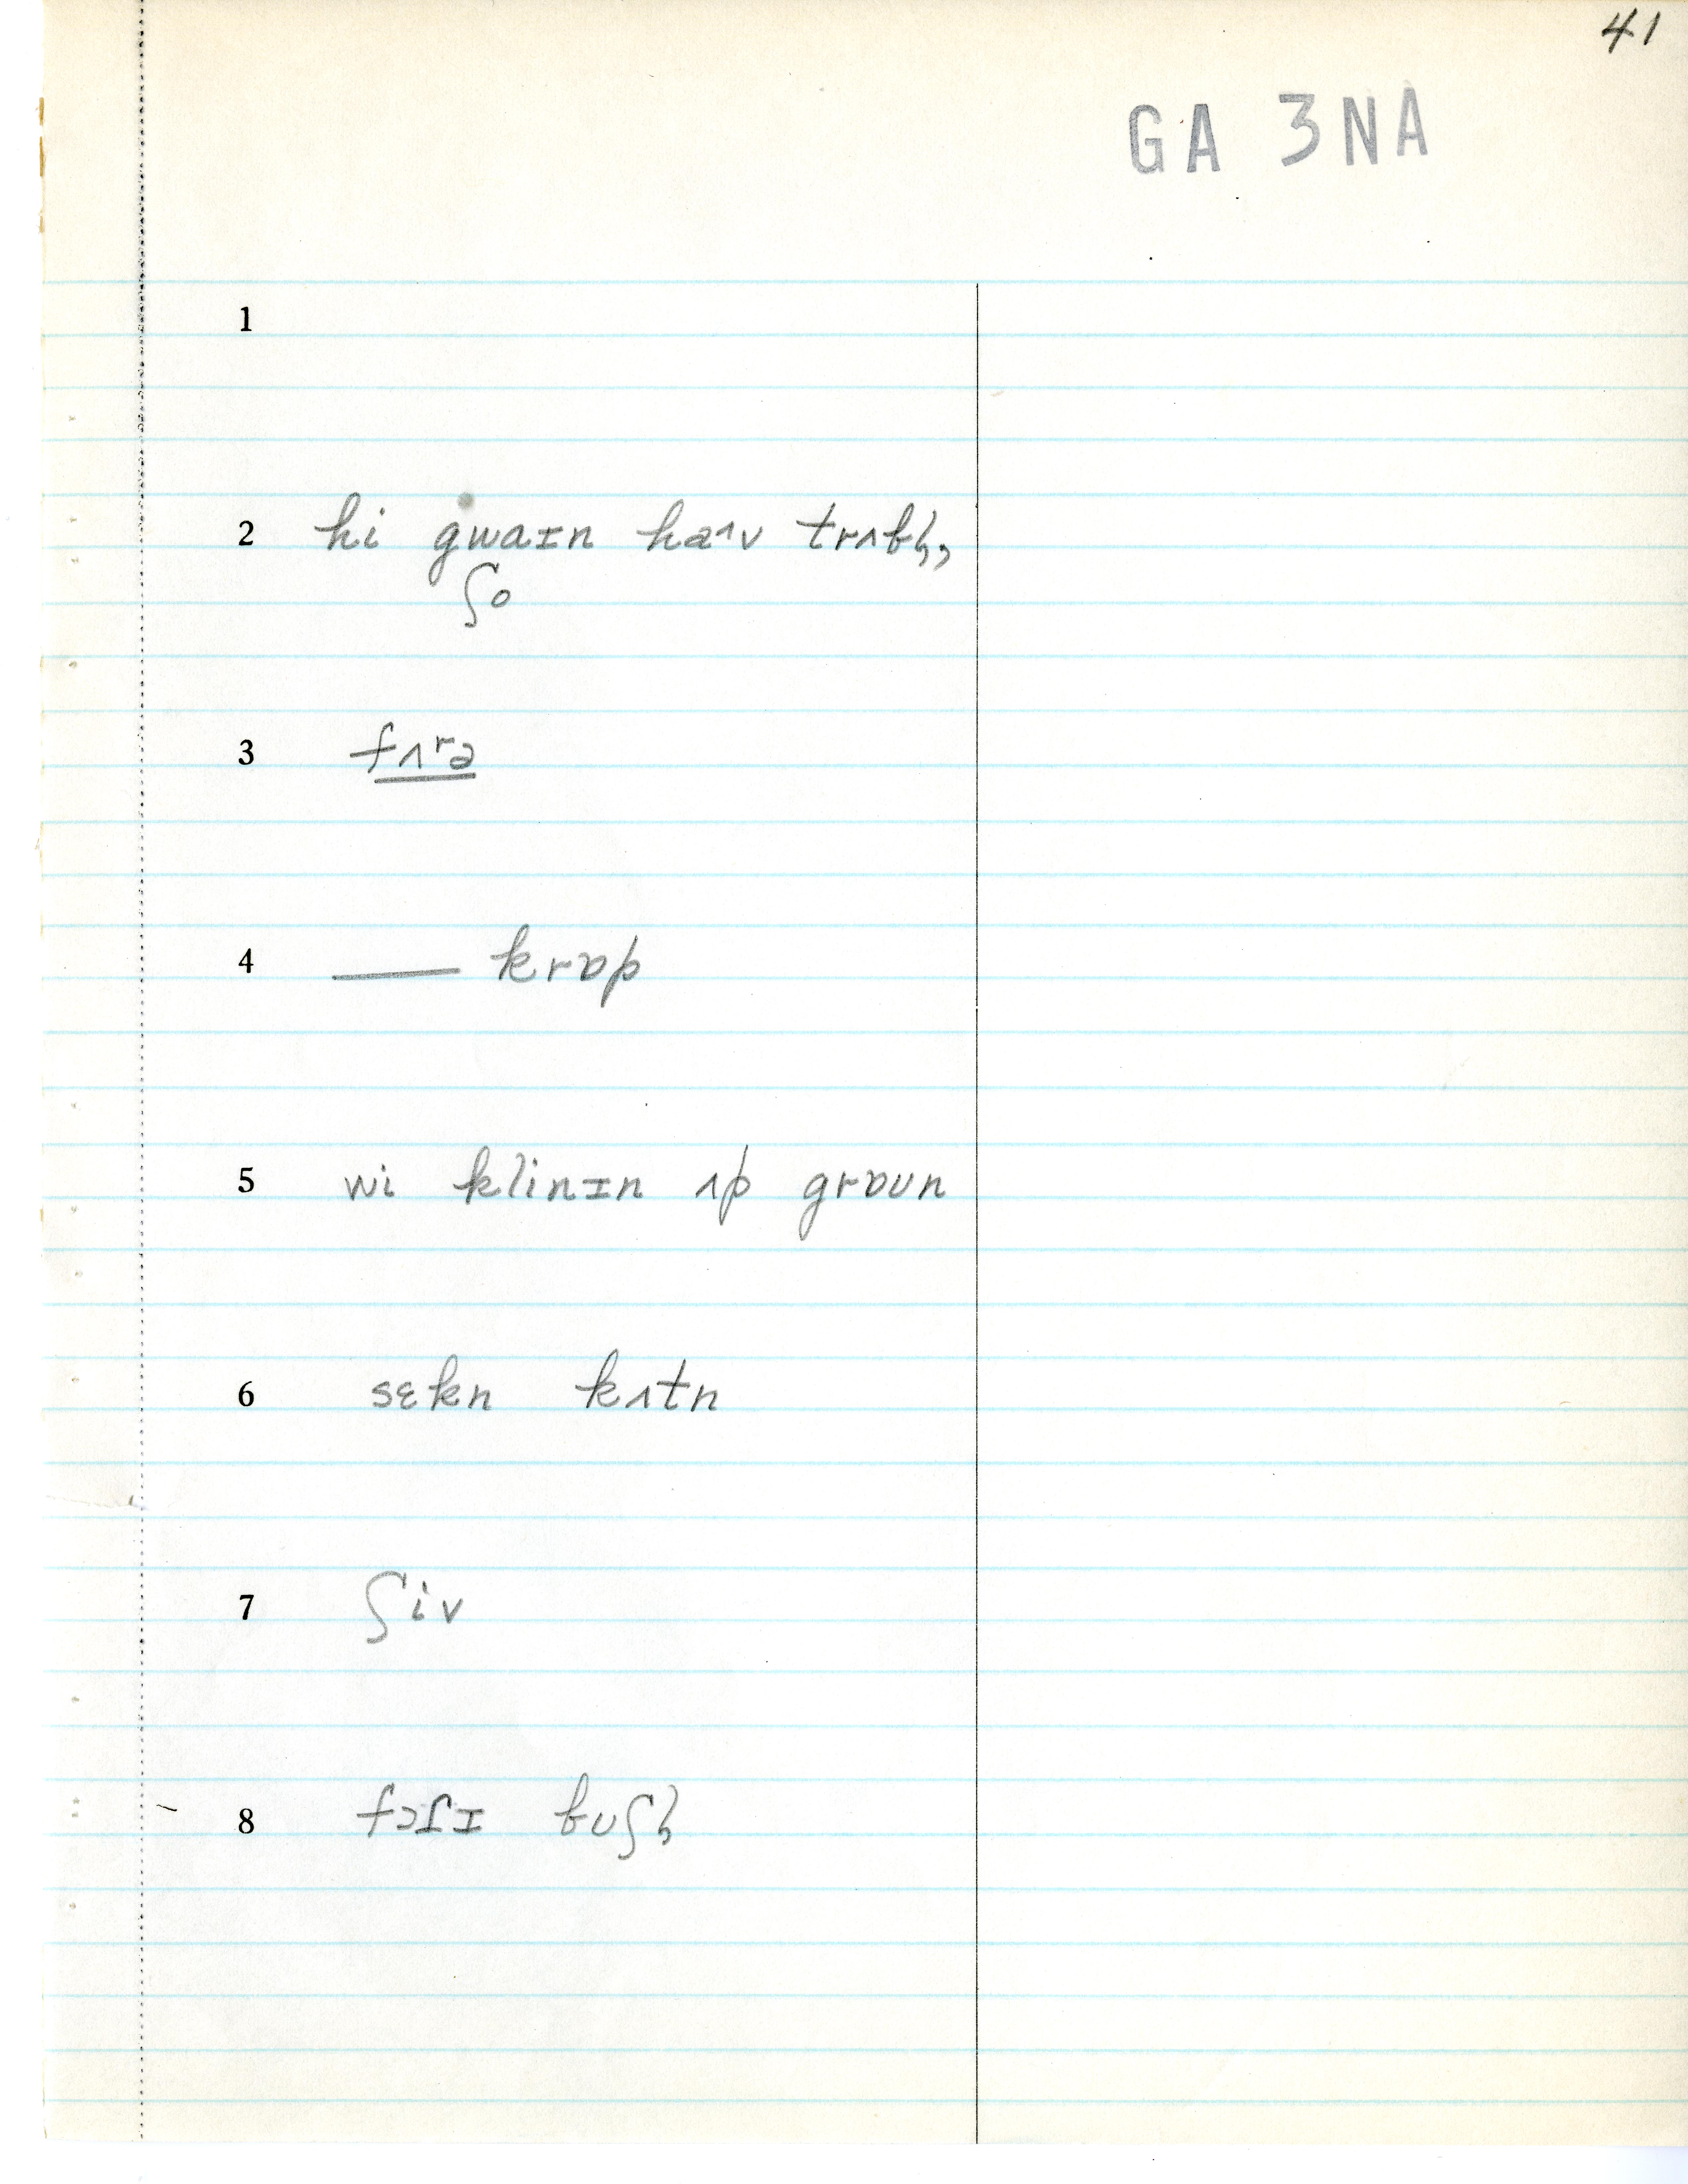 41
GA 3NA
1
2 hi gwaɪn haᶺv trʌbl̩,
ʃo
3 fʌʳə
4 —— krɒp
5 wi klinɪn ʌp grɒun
6 sɛkn kʌtn
7 ʃiv
8 fɔʃɪ buʃl̩